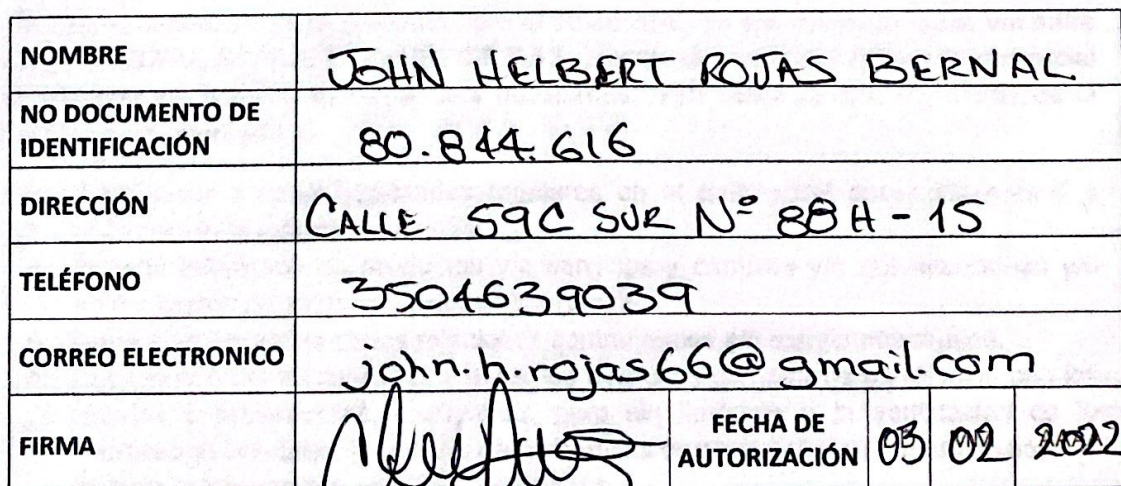 NOMBRE JOHN HELBERT ROJAS BERNAL
NO DOCUMENTO DE
IDENTIFICACIÓN 80.844.616
DIRECCIÓN CALLE 59C SUR Nº 88H - 15
TELÉFONO 3504639039
CORREO ELECTRONICO john.h.rojas66@gmail.com
FIRMA FECHA DE
AUTORIZACIÓN 03 02 2022